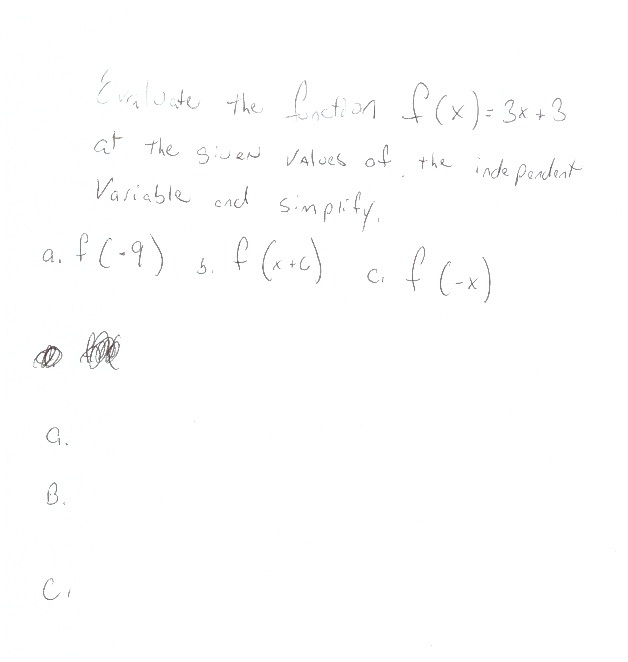 Evaluate the function f(x)=3x+3
at the given values of the independent
Variable and simplify.
a. f(-9) b. f(x+6) c. f(-x)
a.
B.
C.